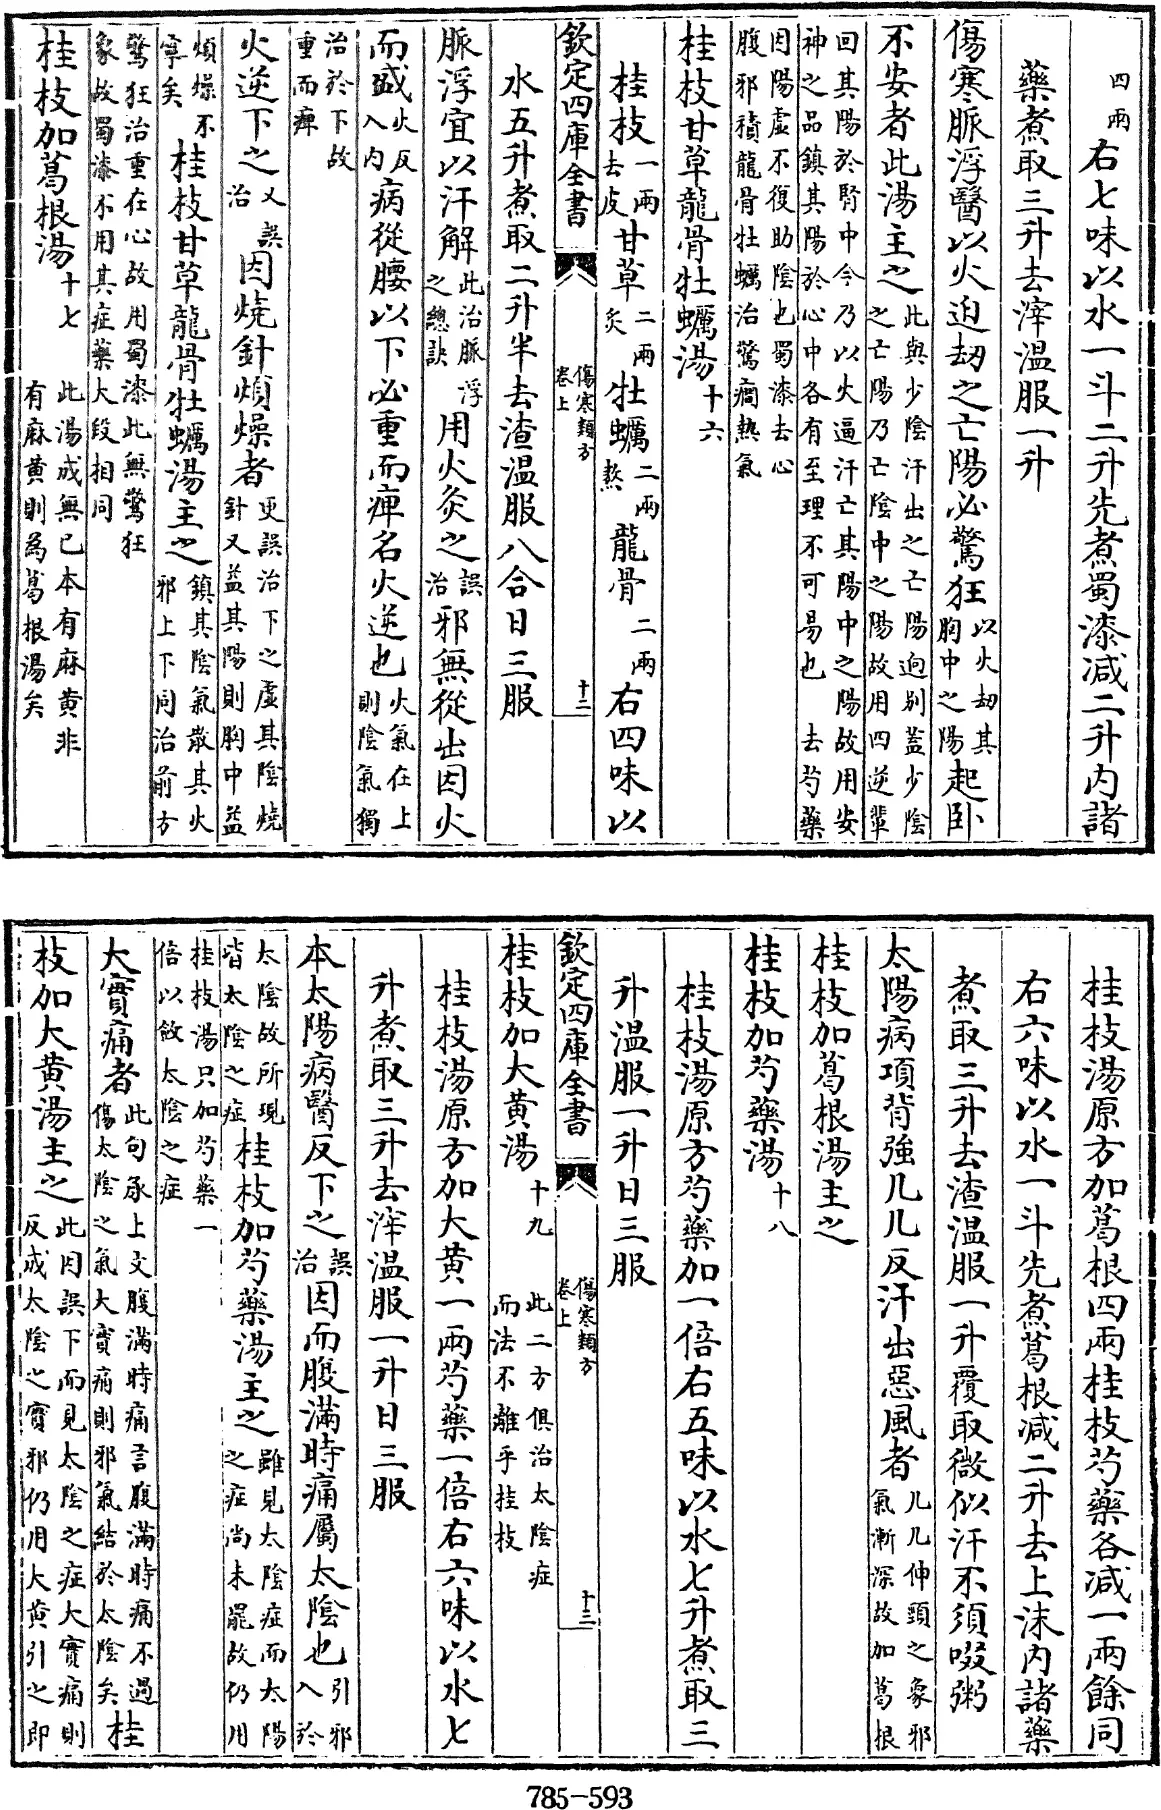 四兩右七味以水一斗二升先煮蜀漆減二升内諸
藥煮取三升去滓温服一升
傷寒脈浮醫以火迫刼之亡陽必驚狂以火刼其胸中之陽起卧
不安者此湯主之此與少陰汗出之亡陽迥别蓋少陰之亡陽乃亡陰中之陽故用四逆輩
回其陽於腎中今乃以火逼汗亡其陽中之陽故用安神之品鎮其陽於心中各有至理不可易也 去芍藥
因陽虚不復助陰也蜀漆去心腹邪積龍骨牡蠣治驚癇熱氣
桂枝甘草龍骨牡蠣湯十六
桂枝一兩去皮甘草二兩炙牡蠣二兩熬龍骨二兩右四味以
欽定四庫全書 傷寒類方卷上 十二
水五升煮取二升半去渣温服八合日三服
脈浮宜以汗解此治脈浮之總訣用火灸之誤治邪無從出因火
而盛火反入内病從腰以下必重而痺名火逆也火氣在上則陰氣獨
治於下故重而痺
火逆下之又誤治因燒針煩燥者更誤治下之虚其陰燒針又益其陽則胸中益
煩燥不寧矣桂枝甘草龍骨牡蠣湯主之鎮其陰氣散其火邪上下同治前方
驚狂治重在心故用蜀漆此無驚狂象故蜀漆不用其症藥大段相同
桂枝加葛根湯十七 此湯成無已本有麻黄非有麻黄則為葛根湯矣
桂枝湯原方加葛根四兩桂枝芍藥各減一兩餘同
右六味以水一斗先煮葛根減二升去上沫内諸藥
煮取三升去渣温服一升覆取微似汗不須啜粥
太陽病項背強几几反汗出惡風者几几伸頸之象邪氣漸深故加葛根
桂枝加葛根湯主之
桂枝加芍藥湯十八
桂枝湯原方芍藥加一倍右五味以水七升煮取三
升温服一升日三服
欽定四庫全書 傷寒類方卷上 十三
桂枝加大黄湯十九 此二方俱治太陰症而法不離乎桂枝
桂枝湯原方加大黄一兩芍藥一倍右六味以水七
升煮取三升去滓温服一升日三服
本太陽病醫反下之誤治因而腹滿時痛屬太陰也引邪入於
太陰故所現皆太陰之症桂枝加芍藥湯主之雖見太陰症而太陽之症尚未罷故仍用
桂枝湯只加芍藥一倍以斂太陰之症
大實痛者此句承上文腹滿時痛言腹滿時痛不過傷太陰之氣大實痛則邪氣結於太陰矣桂
枝加大黄湯主之此因誤下而見太陰之症大實痛則反成太陰之實邪仍用大黄引之即
785-593